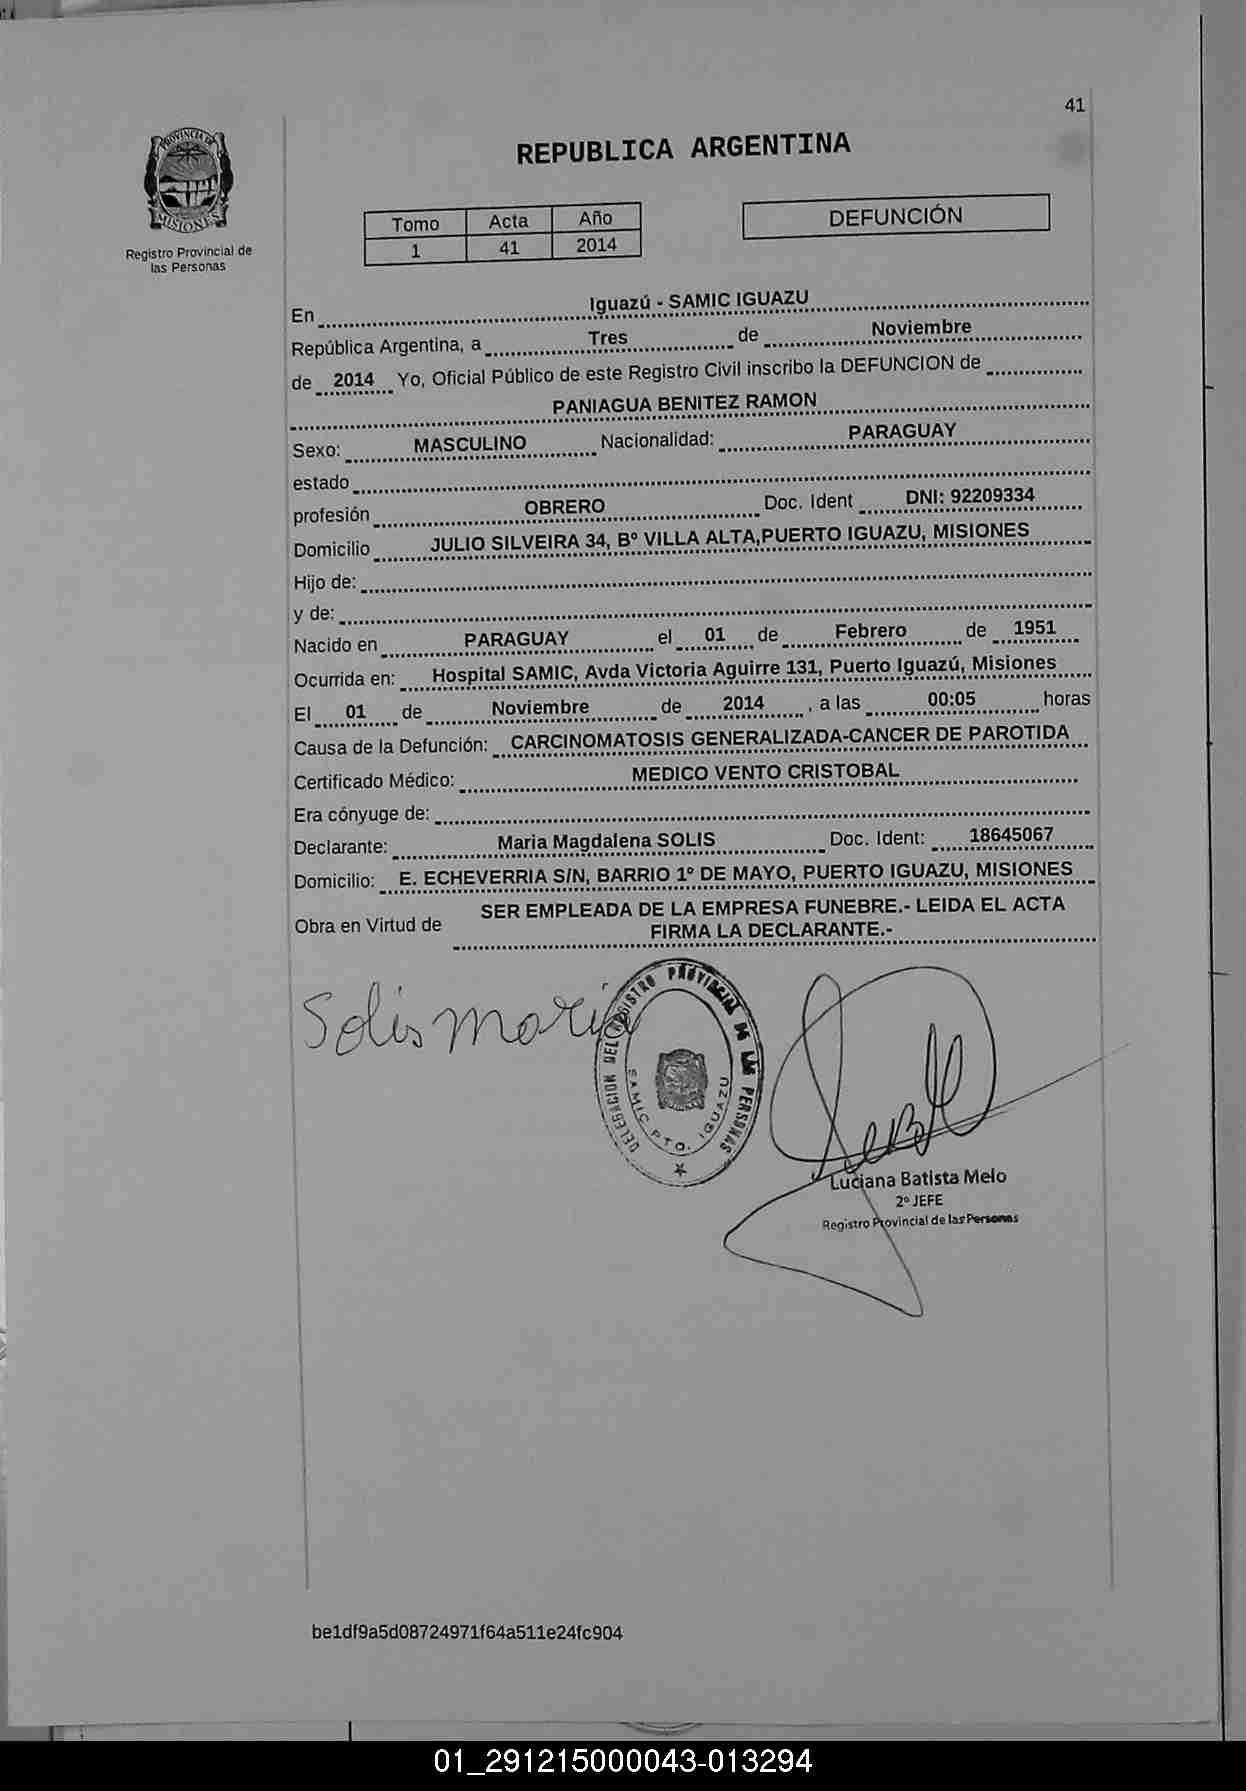 41
PROVINCIA DE
MISIONES
Registro Provincial de
las Personas
REPUBLICA ARGENTINA
Tomo Acta Año
1 41 2014
DEFUNCIÓN
En Iguazú - SAMIC IGUAZU
República Argentina, a Tres de Noviembre
de 2014 Yo, Oficial Público de este Registro Civil inscribo la DEFUNCION de
PANIAGUA BENITEZ RAMON
Sexo: MASCULINO Nacionalidad: PARAGUAY
estado
profesión OBRERO Doc. Ident DNI: 92209334
Domicilio JULIO SILVEIRA 34, Bº VILLA ALTA,PUERTO IGUAZU, MISIONES
Hijo de:
y de:
Nacido en PARAGUAY el 01 de Febrero de 1951
Ocurrida en: Hospital SAMIC, Avda Victoria Aguirre 131, Puerto Iguazú, Misiones
El 01 de Noviembre de 2014 , a las 00:05 horas
Causa de la Defunción: CARCINOMATOSIS GENERALIZADA-CANCER DE PAROTIDA
Certificado Médico: MEDICO VENTO CRISTOBAL
Era cónyuge de:
Declarante: Maria Magdalena SOLIS Doc. Ident: 18645067
Domicilio: E. ECHEVERRIA S/N, BARRIO 1º DE MAYO, PUERTO IGUAZU, MISIONES
Obra en Virtud de SER EMPLEADA DE LA EMPRESA FUNEBRE.- LEIDA EL ACTA
FIRMA LA DECLARANTE.-
Solis maria
DELEGACION DEL REGISTRO PROVINCIAL DE LAS PERSONAS
SAMIC PTO. IGUAZU
Luciana Batista Melo
2º JEFE
Registro Provincial de las Personas
be1df9a5d08724971f64a511e24fc904
01_291215000043-013294